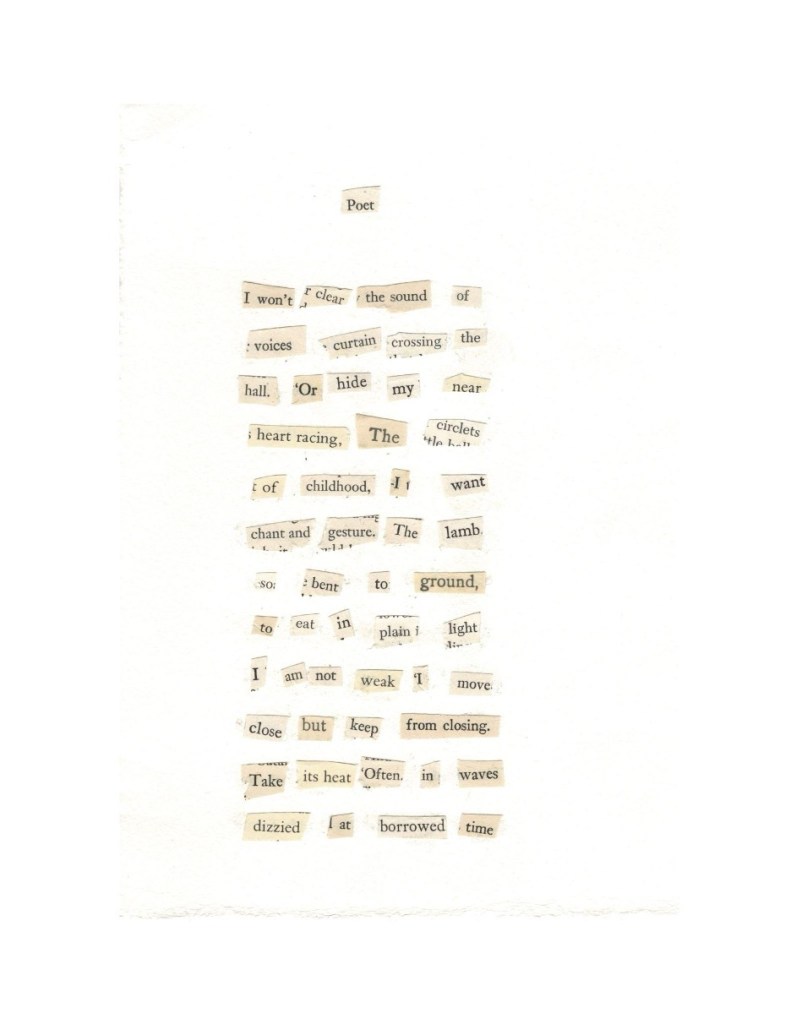 Poet
I won't clear the sound of
voices curtain crossing the
hall. 'Or hide my near
heart racing, The circlets
of childhood, I want
chant and gesture. The lamb
so bent to ground,
to eat in plain light
I am not weak 'I move
close but keep from closing.
Take its heat 'Often. in waves
dizzied at borrowed time